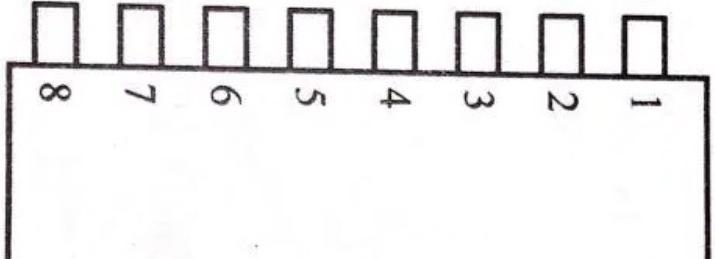 8 7 6 5 4 3 2 1